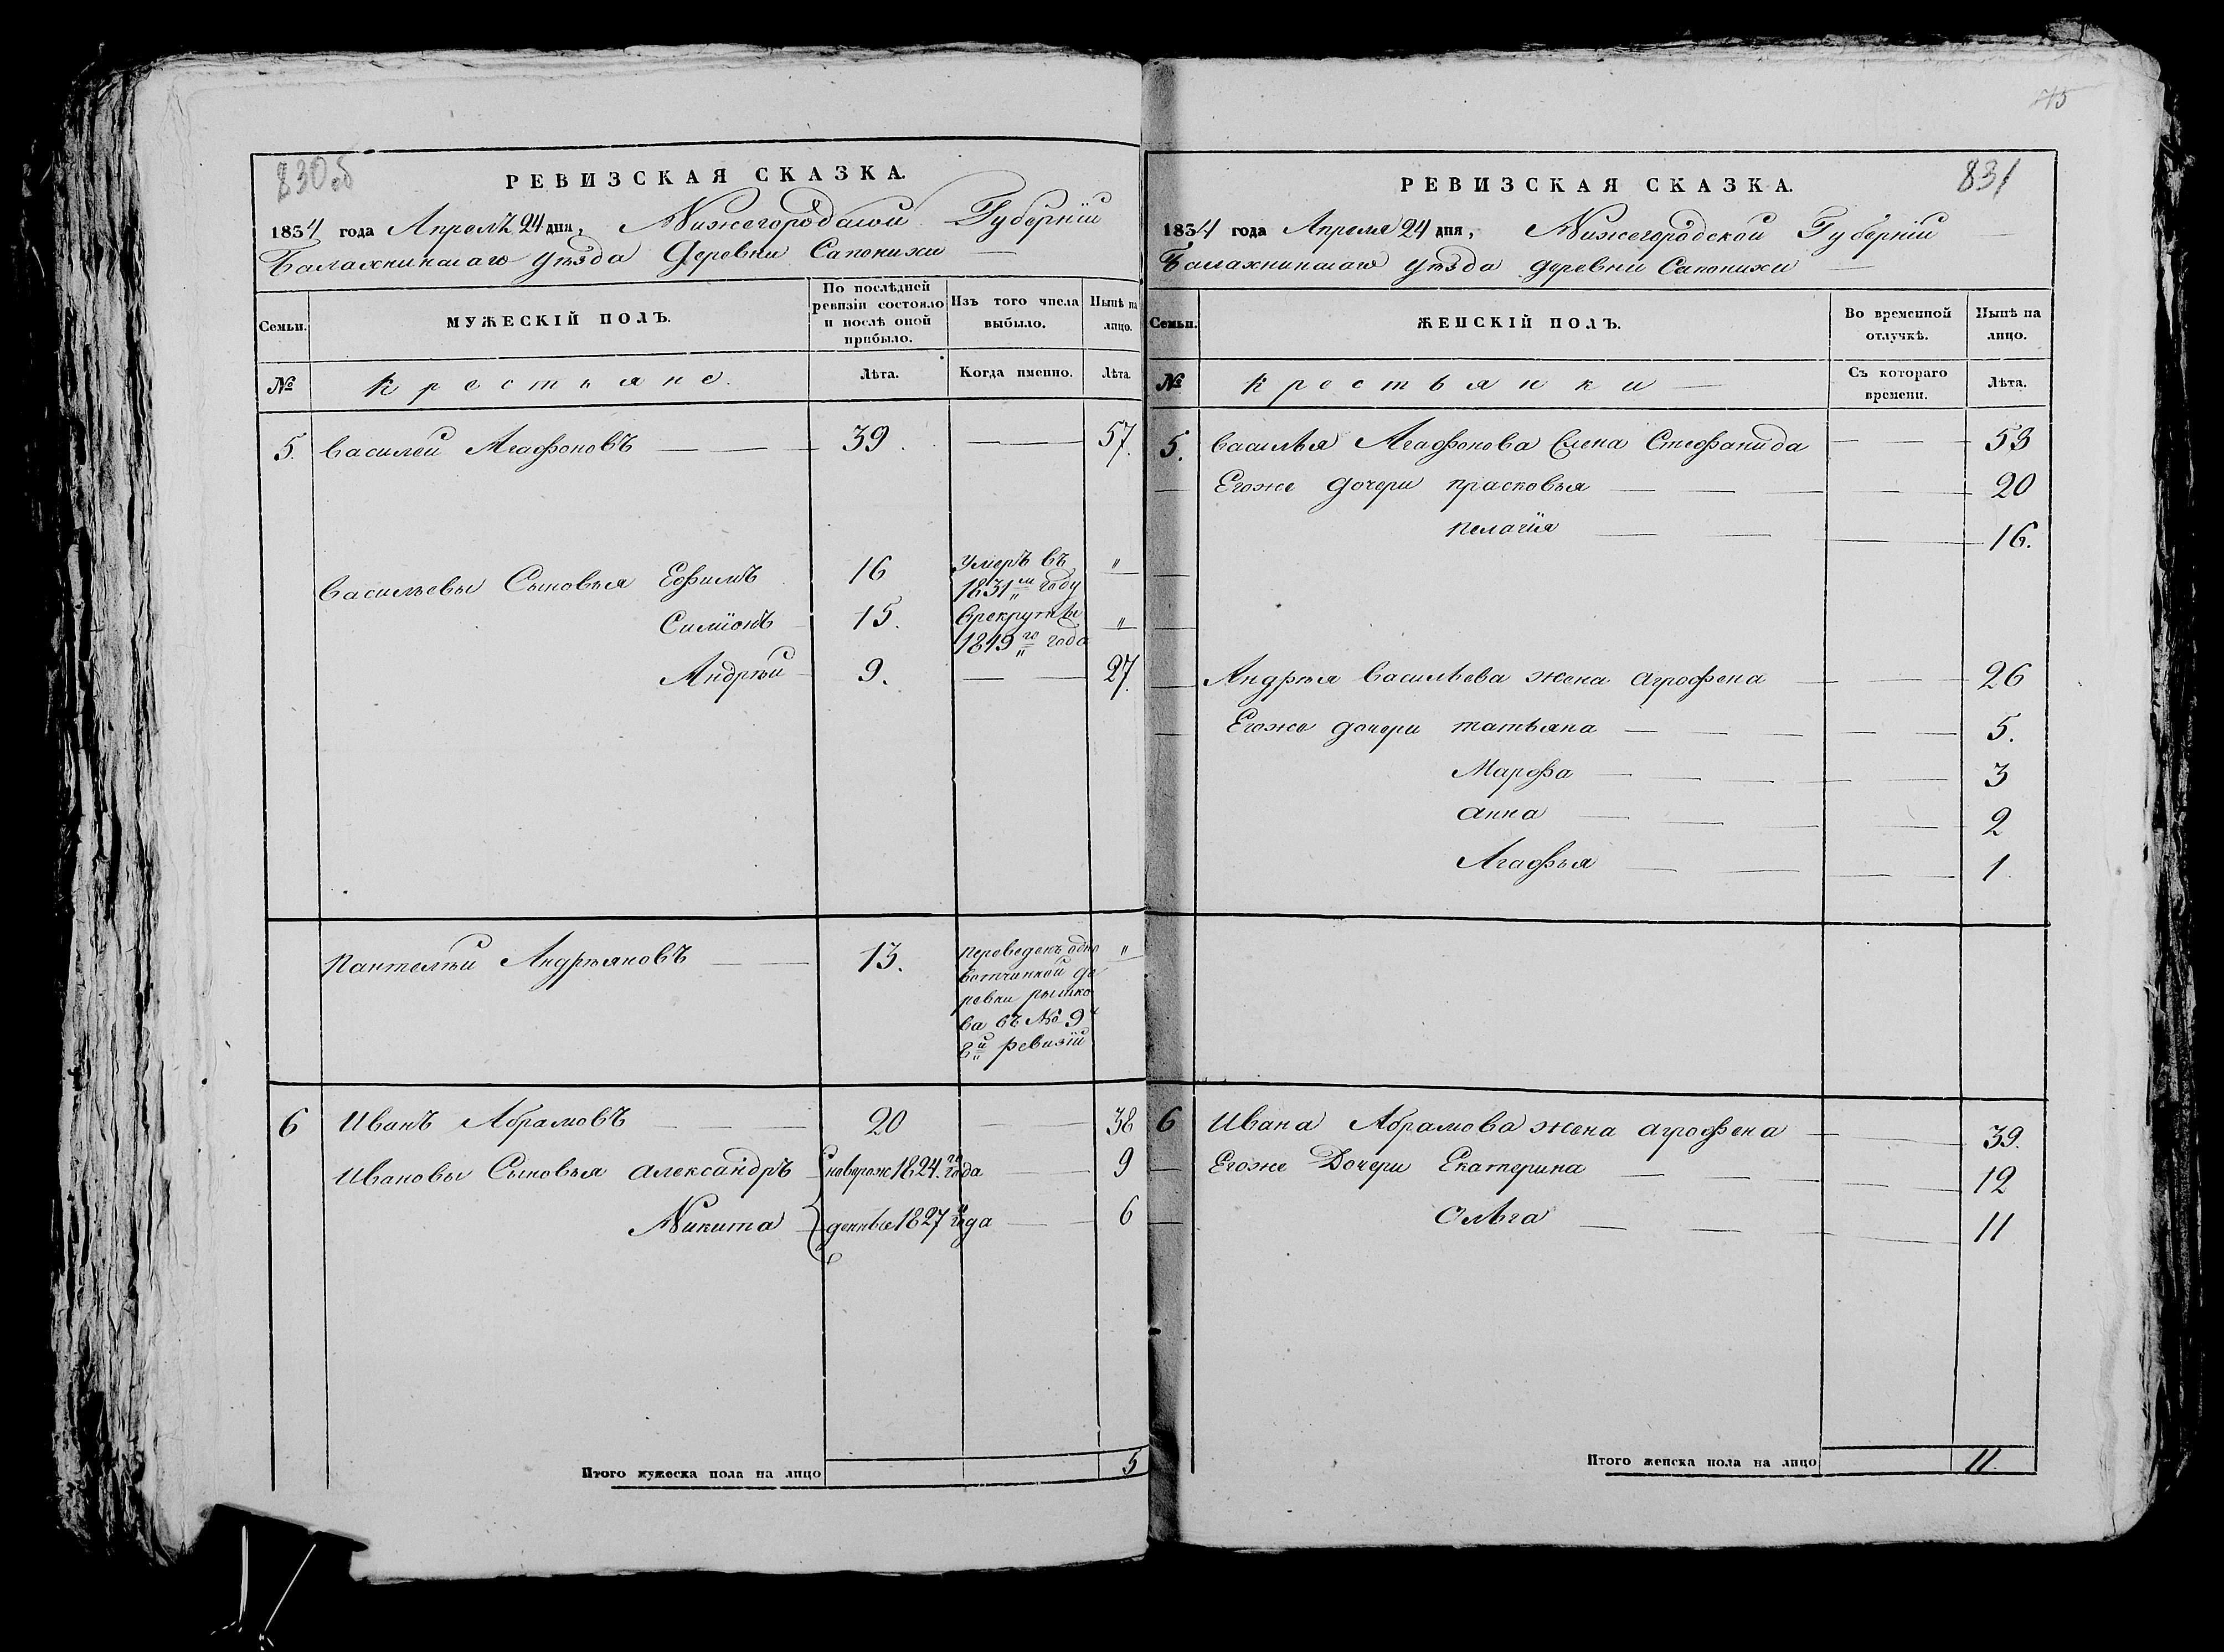 75
830об
РЕВИЗСКАЯ СКАЗКА.
1834 года Апреля 24 дня, Нижегородской Губернiи
Балахнинскаго уѣзда Деревни Сапонихи
Семьи.
МУЖЕСКIЙ ПОЛЪ.
По послѣдней ревизiи состояло и послѣ оной прибыло.
Изъ того числа выбыло.
Нынѣ на лицо.
№
Крестьяне.
Лѣта.
Когда именно.
Лѣта.
5. Василей Агафоновъ 39. 57.
Васильевы Сыновья Ефимъ 16 Умеръ въ 1831м году "
Симiонъ 15. Врекруты 1819го года "
Андрѣй 9. 27.
Пантелѣй Андрѣяновъ 13. "
Переведенъ одно
вотчинной де
ревни рышко
ва въ № 9й
8й ревизiи
6 Иванъ Абрамовъ 20 38
Ивановы Сыновья Александръ Сноворож 1824го года 9
Никита денные 1827го года 6
Итого мужеска пола на лицо 5
831
РЕВИЗСКАЯ СКАЗКА.
1834 года Апреля 24 дня, Нижегородской Губернiи
Балахнинскаго уѣзда деревни Сапонихи
Семьи.
ЖЕНСКIЙ ПОЛЪ.
Во временной отлучкѣ.
Нынѣ на лицо.
№
Крестьянки
Съ котораго времени.
Лѣта.
5. Василья Агафонова Стефанида 53
Егоже дочери прасковья 20
пелагiя 16.
Андрѣя Васильева жена агрофена 26
Егоже дочери татьяна 5.
Марфа 3
анна 2
Агафья 1
6 Ивана Абрамова жена агрофена 39.
Егоже Дочери Екатерина 12
Ольга 11
Итого женска пола на лицо 11.